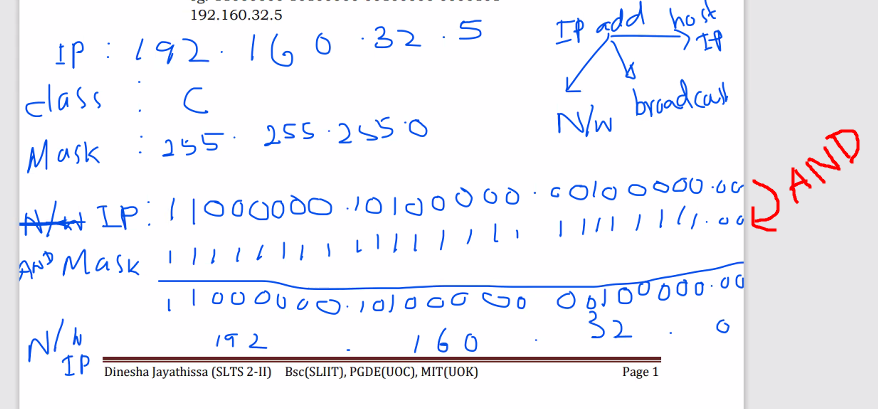 192.160.32.5
IP : 192.160.32.5
class : C
Mask : 255.255.255.0
IP add host IP
N/W broadcast
N/W IP : 11000000.10100000.00100000.00
AND Mask 11111111 11111111 11111111.00
AND
11000000.10100000 00100000.00
N/W IP 192.160.32.0
Dinesha Jayathissa (SLTS 2-II) Bsc(SLIIT), PGDE(UOC), MIT(UOK) Page 1